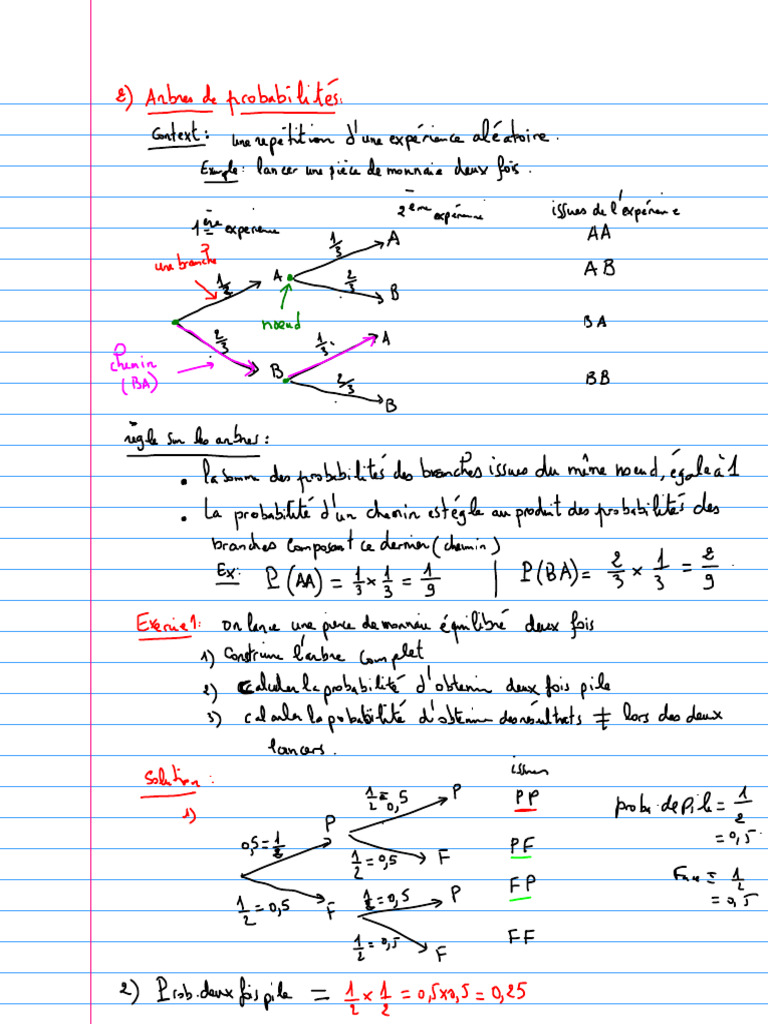 2) Arbres de probabilités:
Context: une repétition d'une expérience aléatoire.
Exemple: lancer une pièce de monnaie deux fois.
1ère experience 2ème expérience issues de l'expérience
1/3 A AA
une branche 1/2 A 2/3 B AB
noeud
2/3 1/3 A BA
chemin (BA) B 2/3 B BB
règle sur les arbres:
• la somme des probabilités des branches issues du même noeud, égale à 1
• La probabilité d'un chemin est égle au produit des probabilités des
branches composant ce dernier (chemin)
Ex: P(AA) = 1/3 × 1/3 = 1/9 | P(BA) = 2/3 × 1/3 = 2/9
Exercie 1: on lance une piece de monnaie équilibré deux fois
1) Construire l'arbre complet
2) Calculer la probabilité d'obtenir deux fois pile
3) calculer la probabilité d'obtenir des résultats ≠ lors des deux
lancers.
Solution: issues
1) 1/2 = 0,5 P PP proba de pile = 1/2
0,5 = 1/2 P = 0,5
1/2 = 0,5 F PF
1/2 = 0,5 F 1/2 = 0,5 P FP Face = 1/2
= 0,5
1/2 = 0,5 F FF
2) Prob. deux fois pile = 1/2 × 1/2 = 0,5×0,5 = 0,25